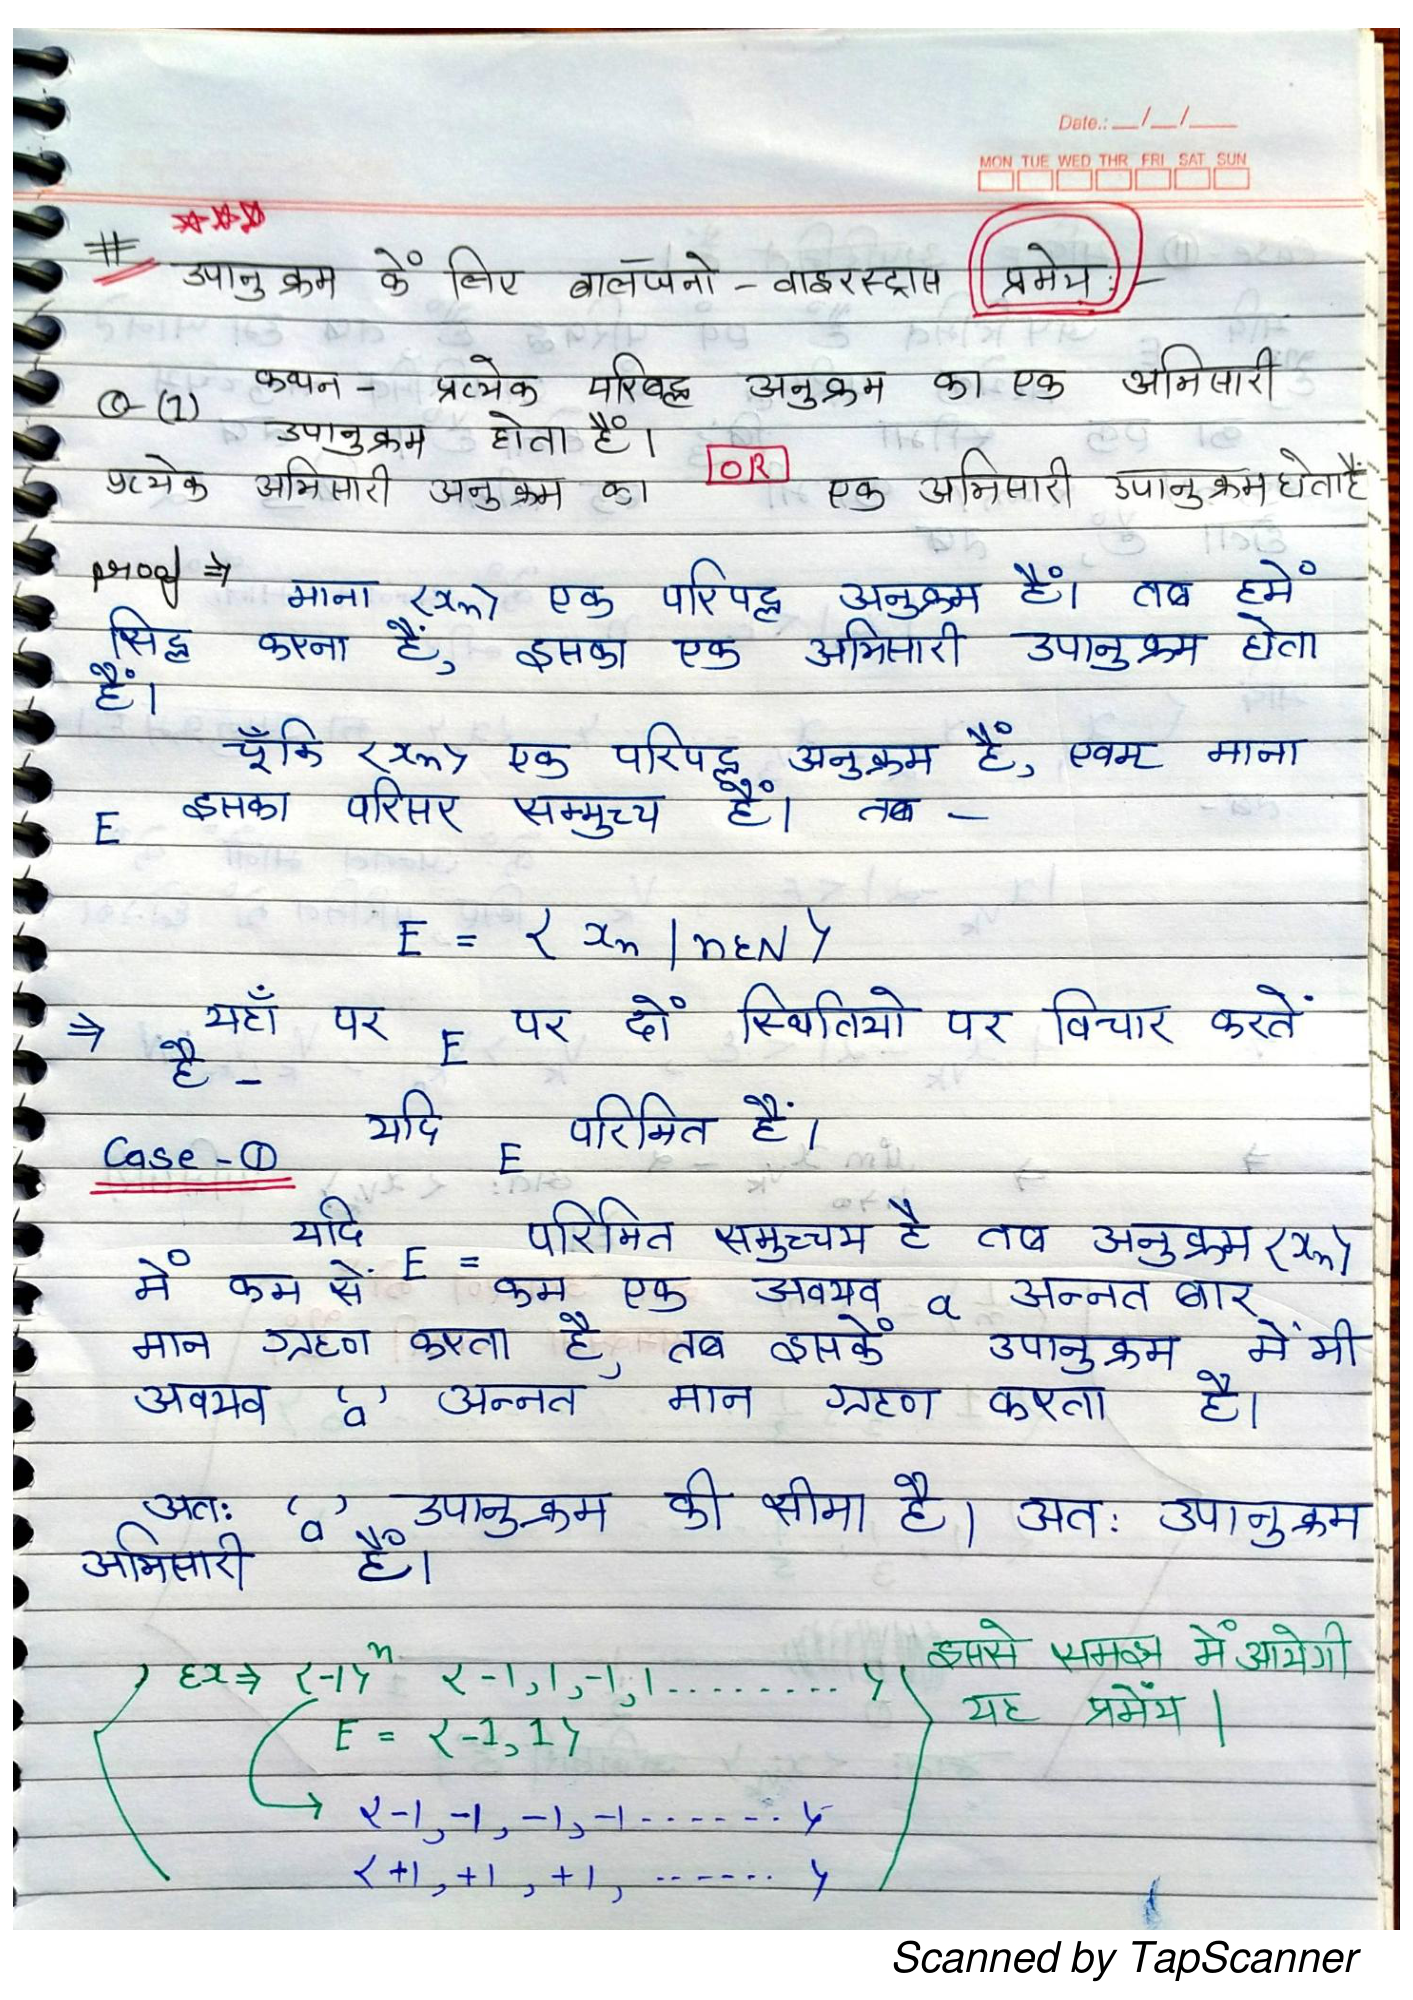 Date.: __/__/____
MON TUE WED THR FRI SAT SUN
# उपानुक्रम कें लिए बालॅजनो - वाइरस्ट्रास प्रमेय :-
Q-(1) कथन - प्रत्येक परिबद्ध अनुक्रम का एक अभिसारी
उपानुक्रम होता हैं।
OR
प्रत्येक अभिसारी अनुक्रम का एक अभिसारी उपानुक्रम होता हैं
proof ⇒ माना <xn> एक परिपद्ध अनुक्रम हैं। तब हमें
सिद्ध करना हैं, इसका एक अभिसारी उपानुक्रम होता
हैं।
चूँकि <xn> एक परिपद्ध अनुक्रम हैं, एवम माना
E इसका परिसर सम्मुच्य हैं। तब —
E = < xn | n ε N >
⇒ यहाँ पर E पर दों स्थितियो पर विचार करतें
है -
Case - ① यदि E परिमित हैं।
यदि E = परिमित समुच्चय है तब अनुक्रम <xn>
में कम सें कम एक अवयव a अन्नत बार
मान ग्रहण करता है, तब इसकें उपानुक्रम में भी
अवयव 'a' अन्नत मान ग्रहण करता है।
अतः 'a' उपानुक्रम की सीमा है। अतः उपानुक्रम
अभिसारी हैं।
Ex ⇒ <-1>ⁿ <-1, 1, -1, 1 ......... > इससे समझ में आयेगी
E = <-1, 1> यह प्रमेंय |
<-1, -1, -1, -1 ------- >
<+1, +1, +1, ------- >
Scanned by TapScanner